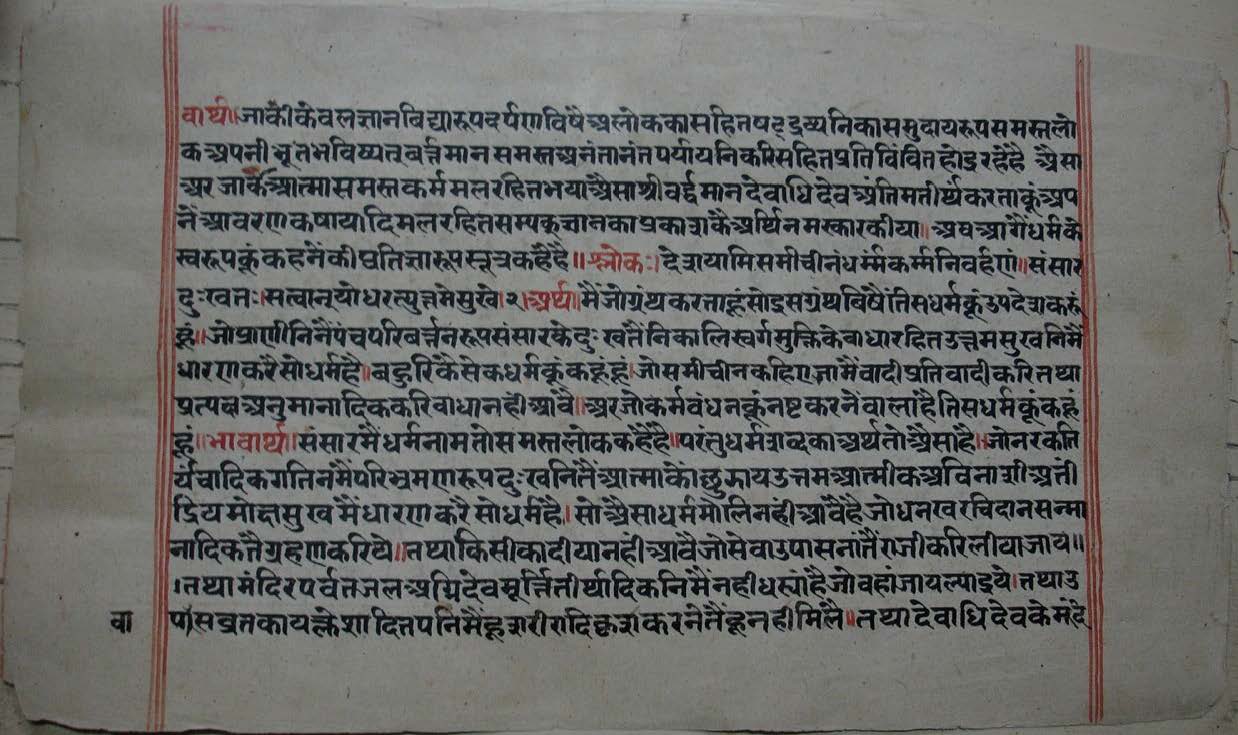 वार्थ॥जाकीकेवलज्ञानविद्यारूपदर्पणविषैअलोककासहितषट्द्रव्यनिकासमुदायरूपसमस्तलो
कअपनीभूतभविष्यतवर्त्तमानसमस्तअनंतानंतपर्यायनिकरिसहितप्रतिविंवितहोइरहेहै ऐसा
अरजाकैआत्मासमस्तकर्ममलरहितभयाऐसाश्रीवर्द्धमानदेवाधिदेवअंतिमतीर्थकरताकूंअप
नेंआवरणकषायादिमलरहितसम्यक्ज्ञानकाप्रकाशकैअर्थिनमस्कारकीया॥अवआगैंधर्मके
स्वरूपकूंकहनेंकीप्रतिज्ञारूपसूत्रकहैंहैं॥श्लोकः।देशयामिसमीचीनंधर्म्मकर्म्मनिवर्हणं॥संसार
दुःखतः।सत्वान्योधरत्युत्तमेसुखे।२।अर्थ॥मैंजोग्रंथकरताहूंसोइसग्रंथविषैंतिसधर्मकूंउपदेशकरूं
हूं॥जोप्राणीनिनैंपंचपरिवर्त्तनरूपसंसारकेदुःखतैंनिकालिस्वर्गमुक्तिकेवाधारहितउत्तमसुखनिमैं
धारणकरैसोधर्महै॥वहुरिकैसेकधर्मकूंकहूंहूं।जोसमीचीनकहिएजामैंवादीप्रतिवादीकरितथा
प्रत्यक्षअनुमानादिककरिवाधानहीआवै॥अरजोकर्मवंधनकूंनष्टकरनेंवालाहैतिसधर्मकूंकहूं
हूं॥भावार्थ॥संसारमैंधर्मनामतोसमस्तलोककहैंहैं॥परंतुधर्मशब्दकाअर्थतोऐसाहै।जोनरकति
र्यंचादिकगतिनमैंपरिभ्रमणरूपदुःखनितैंआत्माकौंछुडायउत्तमआत्मीकअविनाशीअतीं
द्रियमोक्षसुखमैंधारणकरैसोधर्महै।सोऐसाधर्ममोलिनहींआवैहैजोधनखरचिदानसन्मा
नादिकतैंग्रहणकरिये॥तथाकिसीकादीयानहींआवैजोसेवाउपासनांतैंराजीकरिलीयाजाय॥
।तथामंदिरपर्वतजलअग्निदेवमूर्त्तितीर्थादिकनिमैंनहीधस्याहैजोवहांजायल्याइये।तथाउ
पाॅसव्रतकायक्लेशादितपनिमैंहूशरीरादिकृशकरनेतैंहूनहीमिलै॥तथादेवाधिदेवकेमंदि
वा